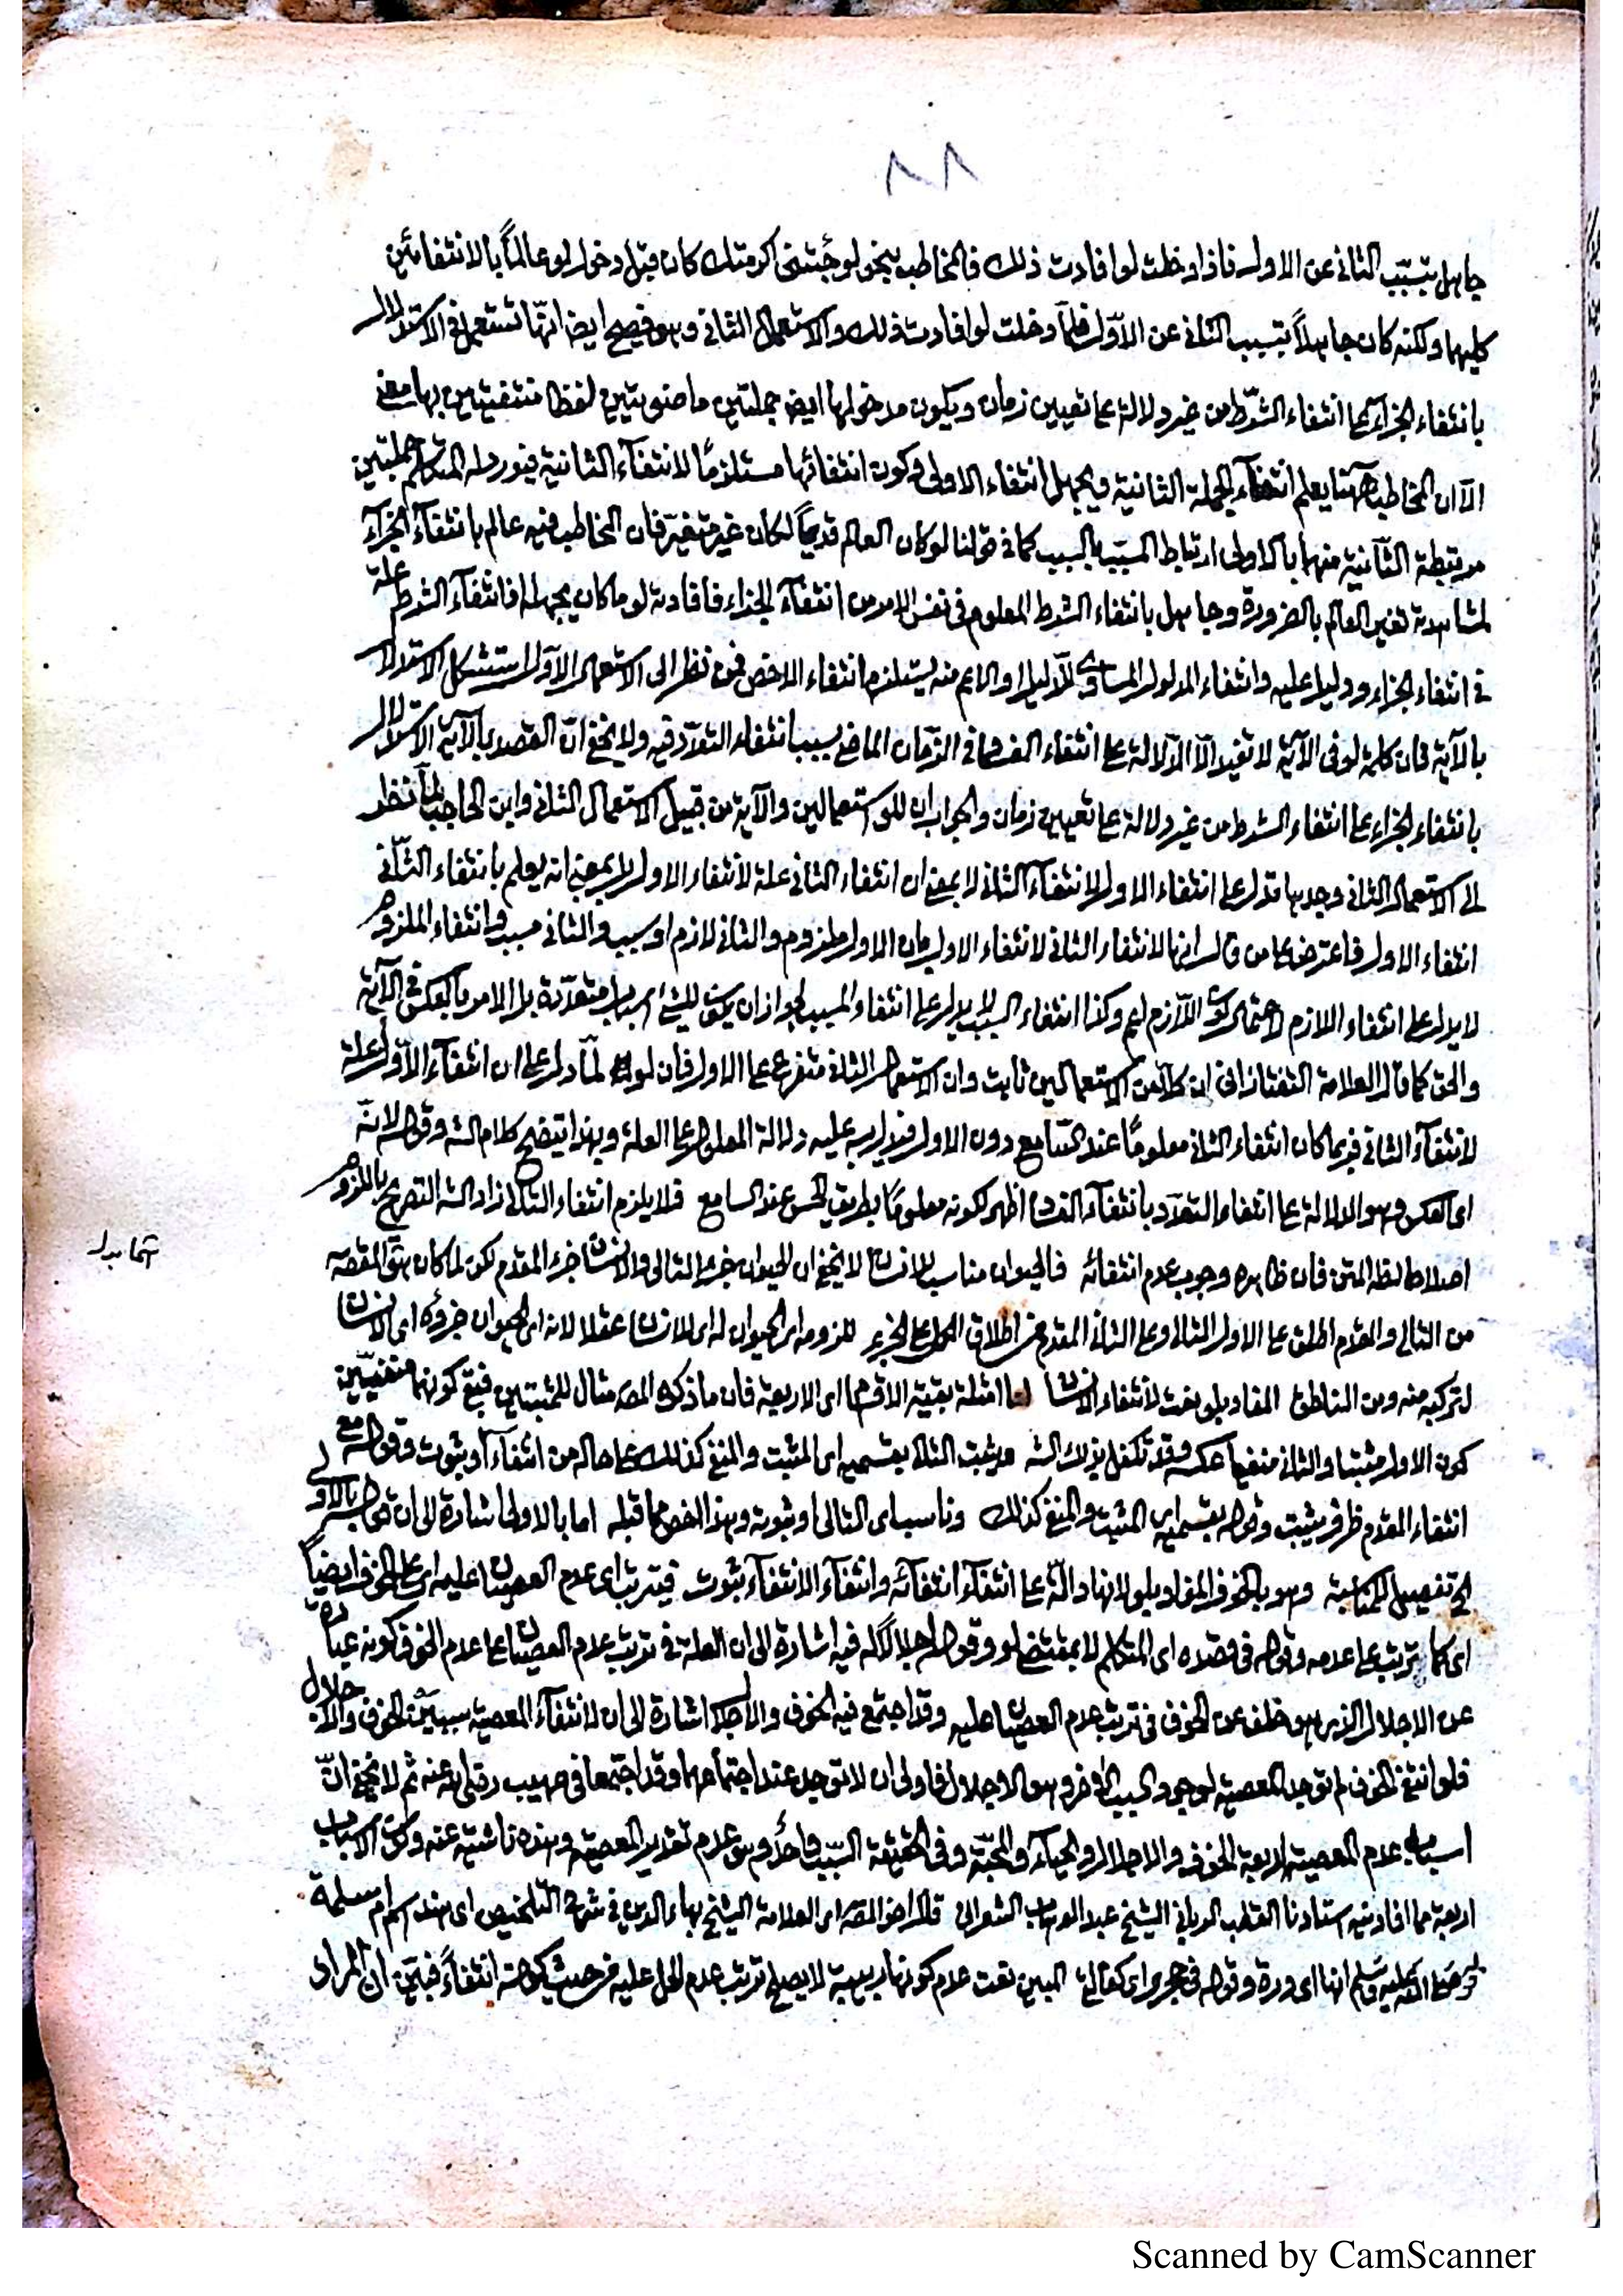 ٨٨
جاهل بتسبب الثانى عن الاول فاذا دخلت لو افادت ذلك فالمخاطب بنحو لو جئتنى اكرمتك كان قبل دخول لو عالماً بالانتفائين
كليهما ولكنه كان جاهلاً بتسبب الثانى عن الاوّل فلمّا دخلت لو افادت ذلك والاستعمال الثانى وهو فصيح ايضا انها تستعمل فى الاستدلال
بانتفاء الجزاء على انتفاء الشرط من غير دلالة على تعيين زمان ويكون مدخولها ايضا جملتين ماضويتين لفظا منتفيتين بها معنى
الا ان المخاطب ههنا يعلم انتفاء الجملة الثانية ويجهل انتفاء الاولى وكون انتفائها مستلزمًا لانتفاء الثانية فيورد له المتكلم جملتين
مرتبطة الثّانية منهما بالاولى ارتباط المسبّب بالسبب كما فى قولنا لو كان العالم قديماً لكان غير متغيّر فان المخاطب فيه عالم بانتفاء الجزاء
لمشاهدة تغير العالم بالضرورة وجاهل بانتفاء الشرط المعلوم فى نفس الامر من انتفاء الجزاء فافادته لو ما كان يجهله اذ انتفاء الشرط علة
فى انتفاء الجزاء ودليل عليه وانتفاء المدلول المساوى للدليل او الاعم منه يستلزم انتفاء الاخص فمن نظر الى الاستعمال الاوّل استشكل الاستدلال
بالآية فان كلمة لو فى الآية لا تفيد الا الدّلالة على انتفاء الفساد فى الزّمان الماضى بسبب انتفاء التعدّد فيه ولا يخفى انّ القصد بالآية الاستدلال
بانتفاء الجزاء على انتفاء الشرط من غير دلالة على تعيين زمان والجواب ان للو استعمالين والآية من قبيل الاستعمال الثانى وابن الحاجب لمّا نظر
الى الاستعمال الثانى وجدها تدل على انتفاء الاول لانتفاء الثانى لا بمعنى ان انتفاء الثانى علة لانتفاء الاول بل بمعنى انه يعلم بانتفاء الثّانى
انتفاء الاول فاعترض على من قال انها لانتفاء الثانى لانتفاء الاول بان الاول ملزوم والثانى لازم او سبب والثانى مسبب وانتفاء الملزوم
لا يدل على انتفاء اللازم لاحتمال كون اللّازم اعم وكذا انتفاء السبب لا يدل على انتفاء المسبب لجواز ان يكون للشئ اسباب متعدّدة بل الامر بالعكس فى الآية
والحق كما قال العلامة التفتازانى ان كلاً من الاستعمالين ثابت وان الاستعمال الثانى متفرع على الاول فان لو لمّا دل على ان انتفاء الاوّل علة
لانتفاء الثانى فربما كان انتفاء الثانى معلومًا عند السّامع دون الاول فيدل به عليه دلالة المعلول على العلة وبهذا يتضح كلام الشه وقوله لانّه
اى العكس وهو الدلالة على انتفاء التعدّد بانتفاء الفساد اظهر لكونه معلومًا بطريق الحس عند السامع فلا يلزم انتفاء التالى زاد الشه التصريح باللزوم
اصلاحا لظه المتن فان ظاهره وجوب عدم انتفائه فالحيوان مناسب للانسان لا يخفى ان الحيوان جزء التالى والانسان جزء المقدم لكن لما كان هو المقصد
من التالى والمقدم اطلق على الاول التالى وعلى الثانى المقدم من اطلاق الكل على الجزء للزومه اى الحيوان له اى للانسان عقلا لانه اى الحيوان جزؤه اى الانسان
لتركبه منه ومن الناطق المفاد بلو نعت لانتفاء الانسان اما امثلة بقية الاقسام اى الاربعة فان ما ذكره المصه مثال للمثبتين فبقى كونهما منفيّين
كون الاول مثبتا والثانى منفيا عكسه وقد تكفل بذلك الشه ويثبت التالى بقسميه اى المثبت والمنفى كذلك على حاله من انتفاء او ثبوت وقوله مع
انتفاء المقدم ظرف يثبت وقوله بقسميه اى المثبت والمنفى كذلك وناسب اى التالى او ثبوته وبهذا الخص مما قبله اما بالاولى اشارة الى ان قوله بالاولى
الخ تفصيل للمناسبة وهو بالخوف المفاد بلو لانها دالّة على انتفاء انتفائه وانتفاء الانتفاء ثبوت فيترتب اى عدم العصيان عليه اى على الخوف ايضاً
اى كما ترتب على عدمه وقوله فى قصده اى المتكلم لا بمقتضى لو وقوله اجلالاً له فيه اشارة الى ان العلة فى ترتب عدم العصيان على عدم الخوف كونه عبارة
عن الاجلال الذى هو خلف عن الخوف فى ترتب عدم العصيان عليه وقد اجتمع فيه الخوف والاجلال اشارة الى ان لانتفاء المعصية سببين الخوف والاجلال
فلو انتفى الخوف لم توجد المعصية لوجود السبب الآخر وهو الاجلال فاولى ان لا توجد عند اجتماعهما وقد اجتمعا فى صهيب رضى الله عنه ثم لا يخفى انّ
اسباب عدم المعصية اربعة الخوف والاجلال والحياء والمحبّة وفى الحقيقة السّبب واحد وهو عدم تقدير المعصية وهذه ناشئة عنه وكون الاسباب
اربعة مما افادنيه استاذنا القطب الربانى الشيخ عبد الوهاب الشعرانى قال اخو المصه اى العلامة الشيخ بهاء الدين فى شرح التلخيص اى هند اسم ام سلمة
لو صلى الله عليه وسلم انها اى درة وقوله فى حجرى اى كفالتى المبين نعت عدم كونها ربيبة لا يصلح ترتب عدم الحل عليه من حيث كونه انتفاءً فبيّن ان المراد
اثما بدل